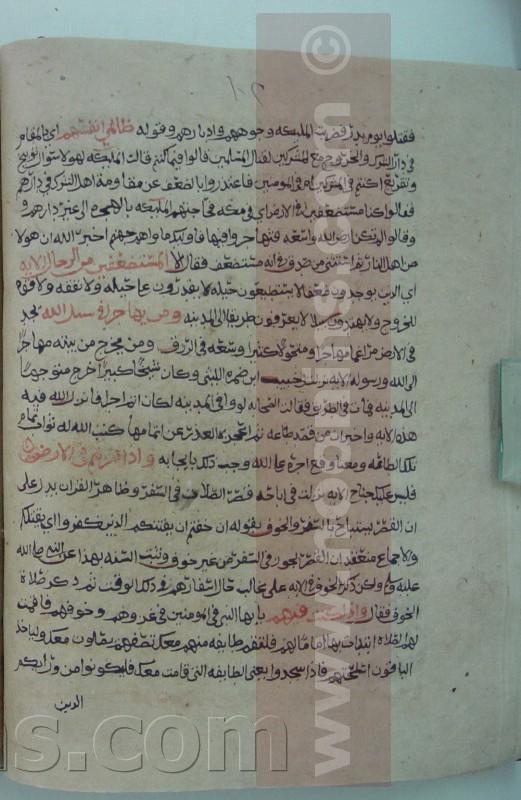 ١٠٢
فقتلوا يوم بدر فضربت الملئكه وجوههم وادبارهم وقوله ظالمي انفسهم اي بالمقام
في دار الشرك والخروج مع المشركين لقتال المسلمين قالوا فيم كنتم قالت الملئكه لهولا سوال توبيخ
وتقريع اكنتم في المشركين ام في المومنين فاعتذروا بالضعف عن مقاومة اهل الشرك في دارهم
فقالوا كنا مستضعفين في الارض اي في مكه فحاجتهم الملئكه بالهجره الى غير دارهم و
وقالوا الم تكن ارض الله واسعه فتهاجروا فيها فاوليك ماواهم جهنم اخبر الله ان هولا
من اهل النار ثم استثنى من صدق في انه مستضعف فقال الا المستضعفين من الرجال الايه
اي الذين يوجدون ضعفا لا يستطيعون حيله لا يقدرون على حيله ولا نفقه ولا قوه
للخروج ولا يهتدون سبيلا لا يعرفون طريقا الى المدينه ومن يهاجر في سبيل الله يجد
في الارض مراغما مهاجرا ومتحولا كثيرا وسعه في الرزق ومن يخرج من بيته مهاجرا
الى الله ورسوله الايه نزلت في حبيب ابن ضمره الليثي وكان شيخا كبيرا خرج متوجها
الى المدينه فمات في الطريق فقالت الصحابه لو وافى المدينه لكان اتم اجرا فانزل الله فيه
هذه الايه واخبر ان من قصد طاعه ثم اعجزه العذر عن اتمامها كتب الله له ثواب تمام
تلك الطاعه ومعنا وقع اجره على الله وجب ذلك بايجابه واذا ضربتم في الارض
فليس عليكم جناح الايه نزلت في اباحة قصر الصلاه في السفر وظاهر القران يدل على
ان القصر يستباح بالسفر والخوف بقوله ان خفتم ان يفتنكم الذين كفروا اي يقتلكم
والاجماع منعقد ان القصر يجوز في السفر من غير خوف وثبتت السنه بهذا عن النبي صلى الله
عليه وسلم ولكن ذكر الخوف في الايه على غالب حال اسفارهم في ذلك الوقت ثم ذكر صلاة
الخوف فقال واذا كنت فيهم يا ايها النبي في المومنين في غزوهم وخوفهم فاقمت
لهم الصلاة ابتدات بها اماما لهم فلتقم طايفه منهم معك نصفهم يصلون معك ولياخذ
الباقون اسلحتهم فاذا سجدوا يعني الطايفه التي قامت معك فليكونوا من ورائكم
الذين
www.manophilic.com
s.com
©